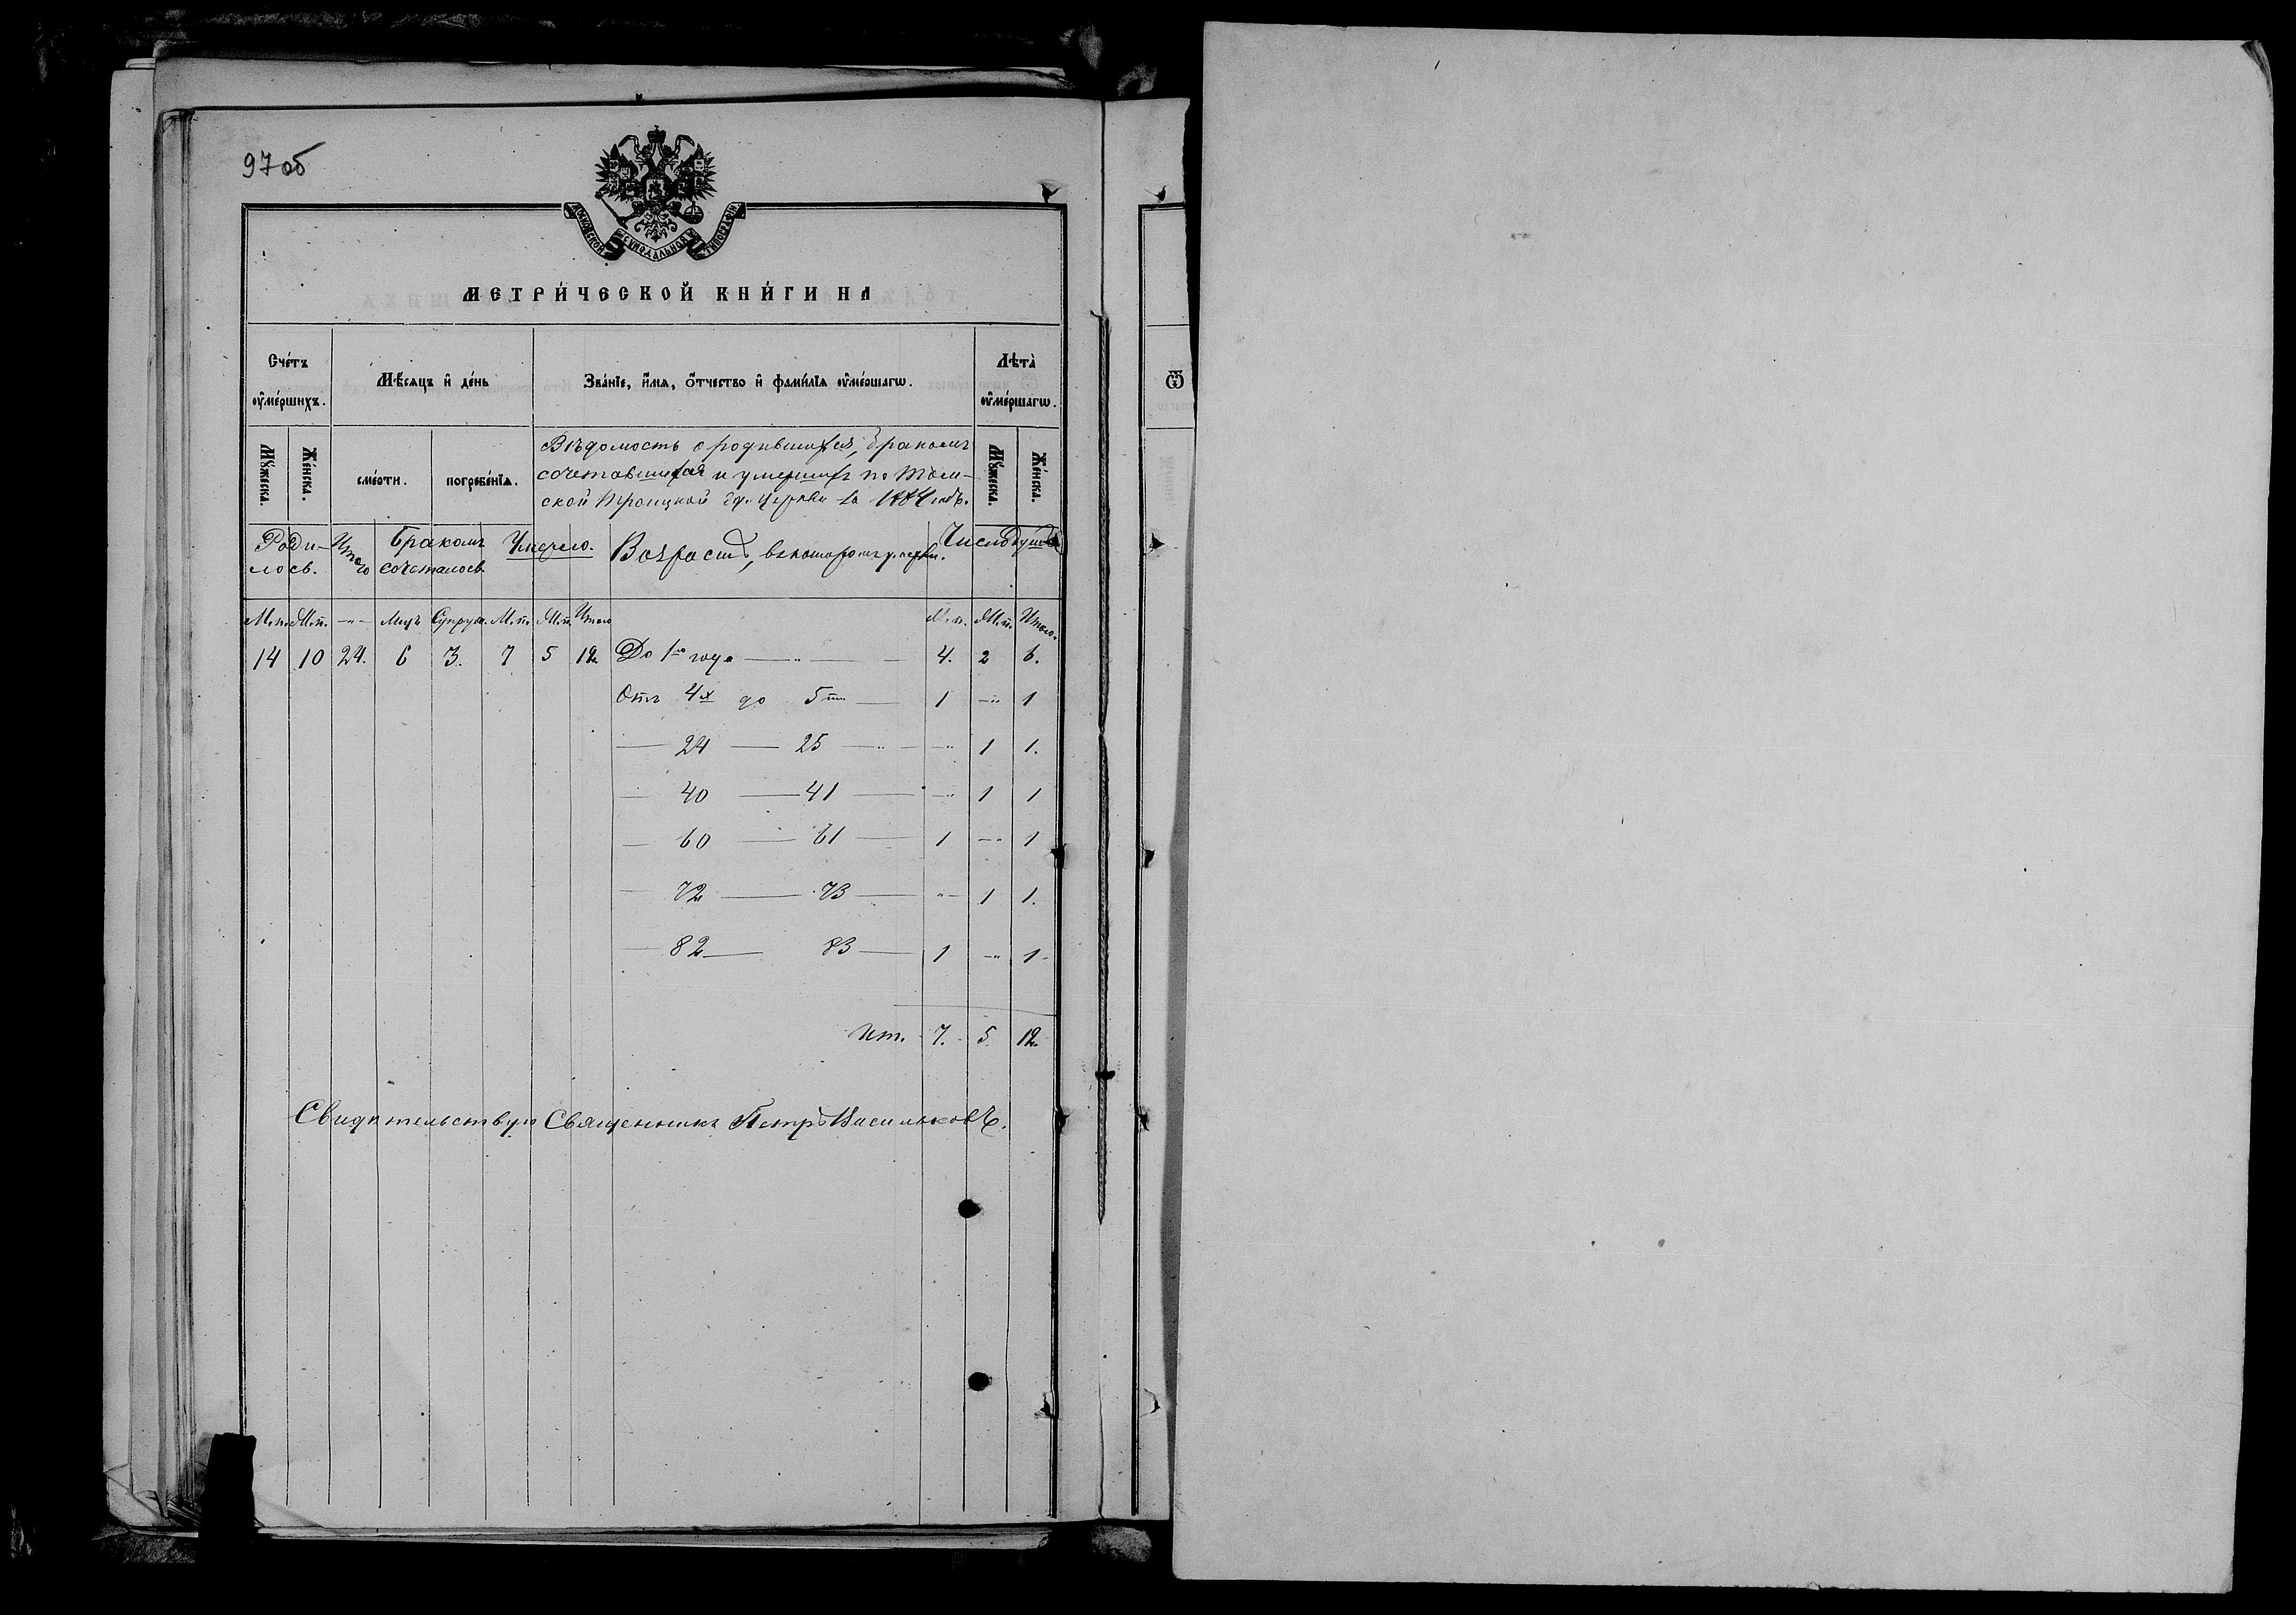 97 об
МОСКОВСКОЙ СѴНОДАЛЬНОЙ ТИПОГРАФІИ
МЕТРИ́ЧЕСКОЙ КНИ́ГИ НА
Сче́тъ оу҆ме́ршихъ.
Мѣ́сяцъ и҆ де́нь
Зва́нїе, и҆́мѧ, ѻ҆́тчество и҆ фами́лїѧ оу҆ме́ршагѡ.
Лѣта̀ оу҆ме́ршагѡ.
Ѿ
Мꙋ́жеска.
Же́нска.
сме́рти.
погребе́нїѧ.
Вѣдомость о родившихся, бракомъ
сочетавшихся и умершихъ по Том-
ской Троицкой Ед. церкви за 1884 годъ.
Мꙋ́жеска.
Же́нска.
Роди-лось.
Итого
Бракомъ сочеталось.
Умерло.
Возрастъ, въ которомъ умерли.
Число душъ
М. п. Ж. п. —„— Лицъ Супруж. М. п. Ж. п. Итого М. п. Ж. п. Итого.
14 10 24. 6 3. 7 5 12. До 1го года —„— 4. 2 6.
Отъ 4х до 5ти — 1 —„ 1
— 24 — 25 —„— —„ 1 1.
— 40 — 41 — —„ 1 1
— 60 — 61 — 1 —„ 1
— 72 — 73 — „— 1 1.
— 82 — 83 — 1 —„ 1
Ит. 7. 5. 12.
Свидѣтельствую Священникъ Петръ Васильковъ.